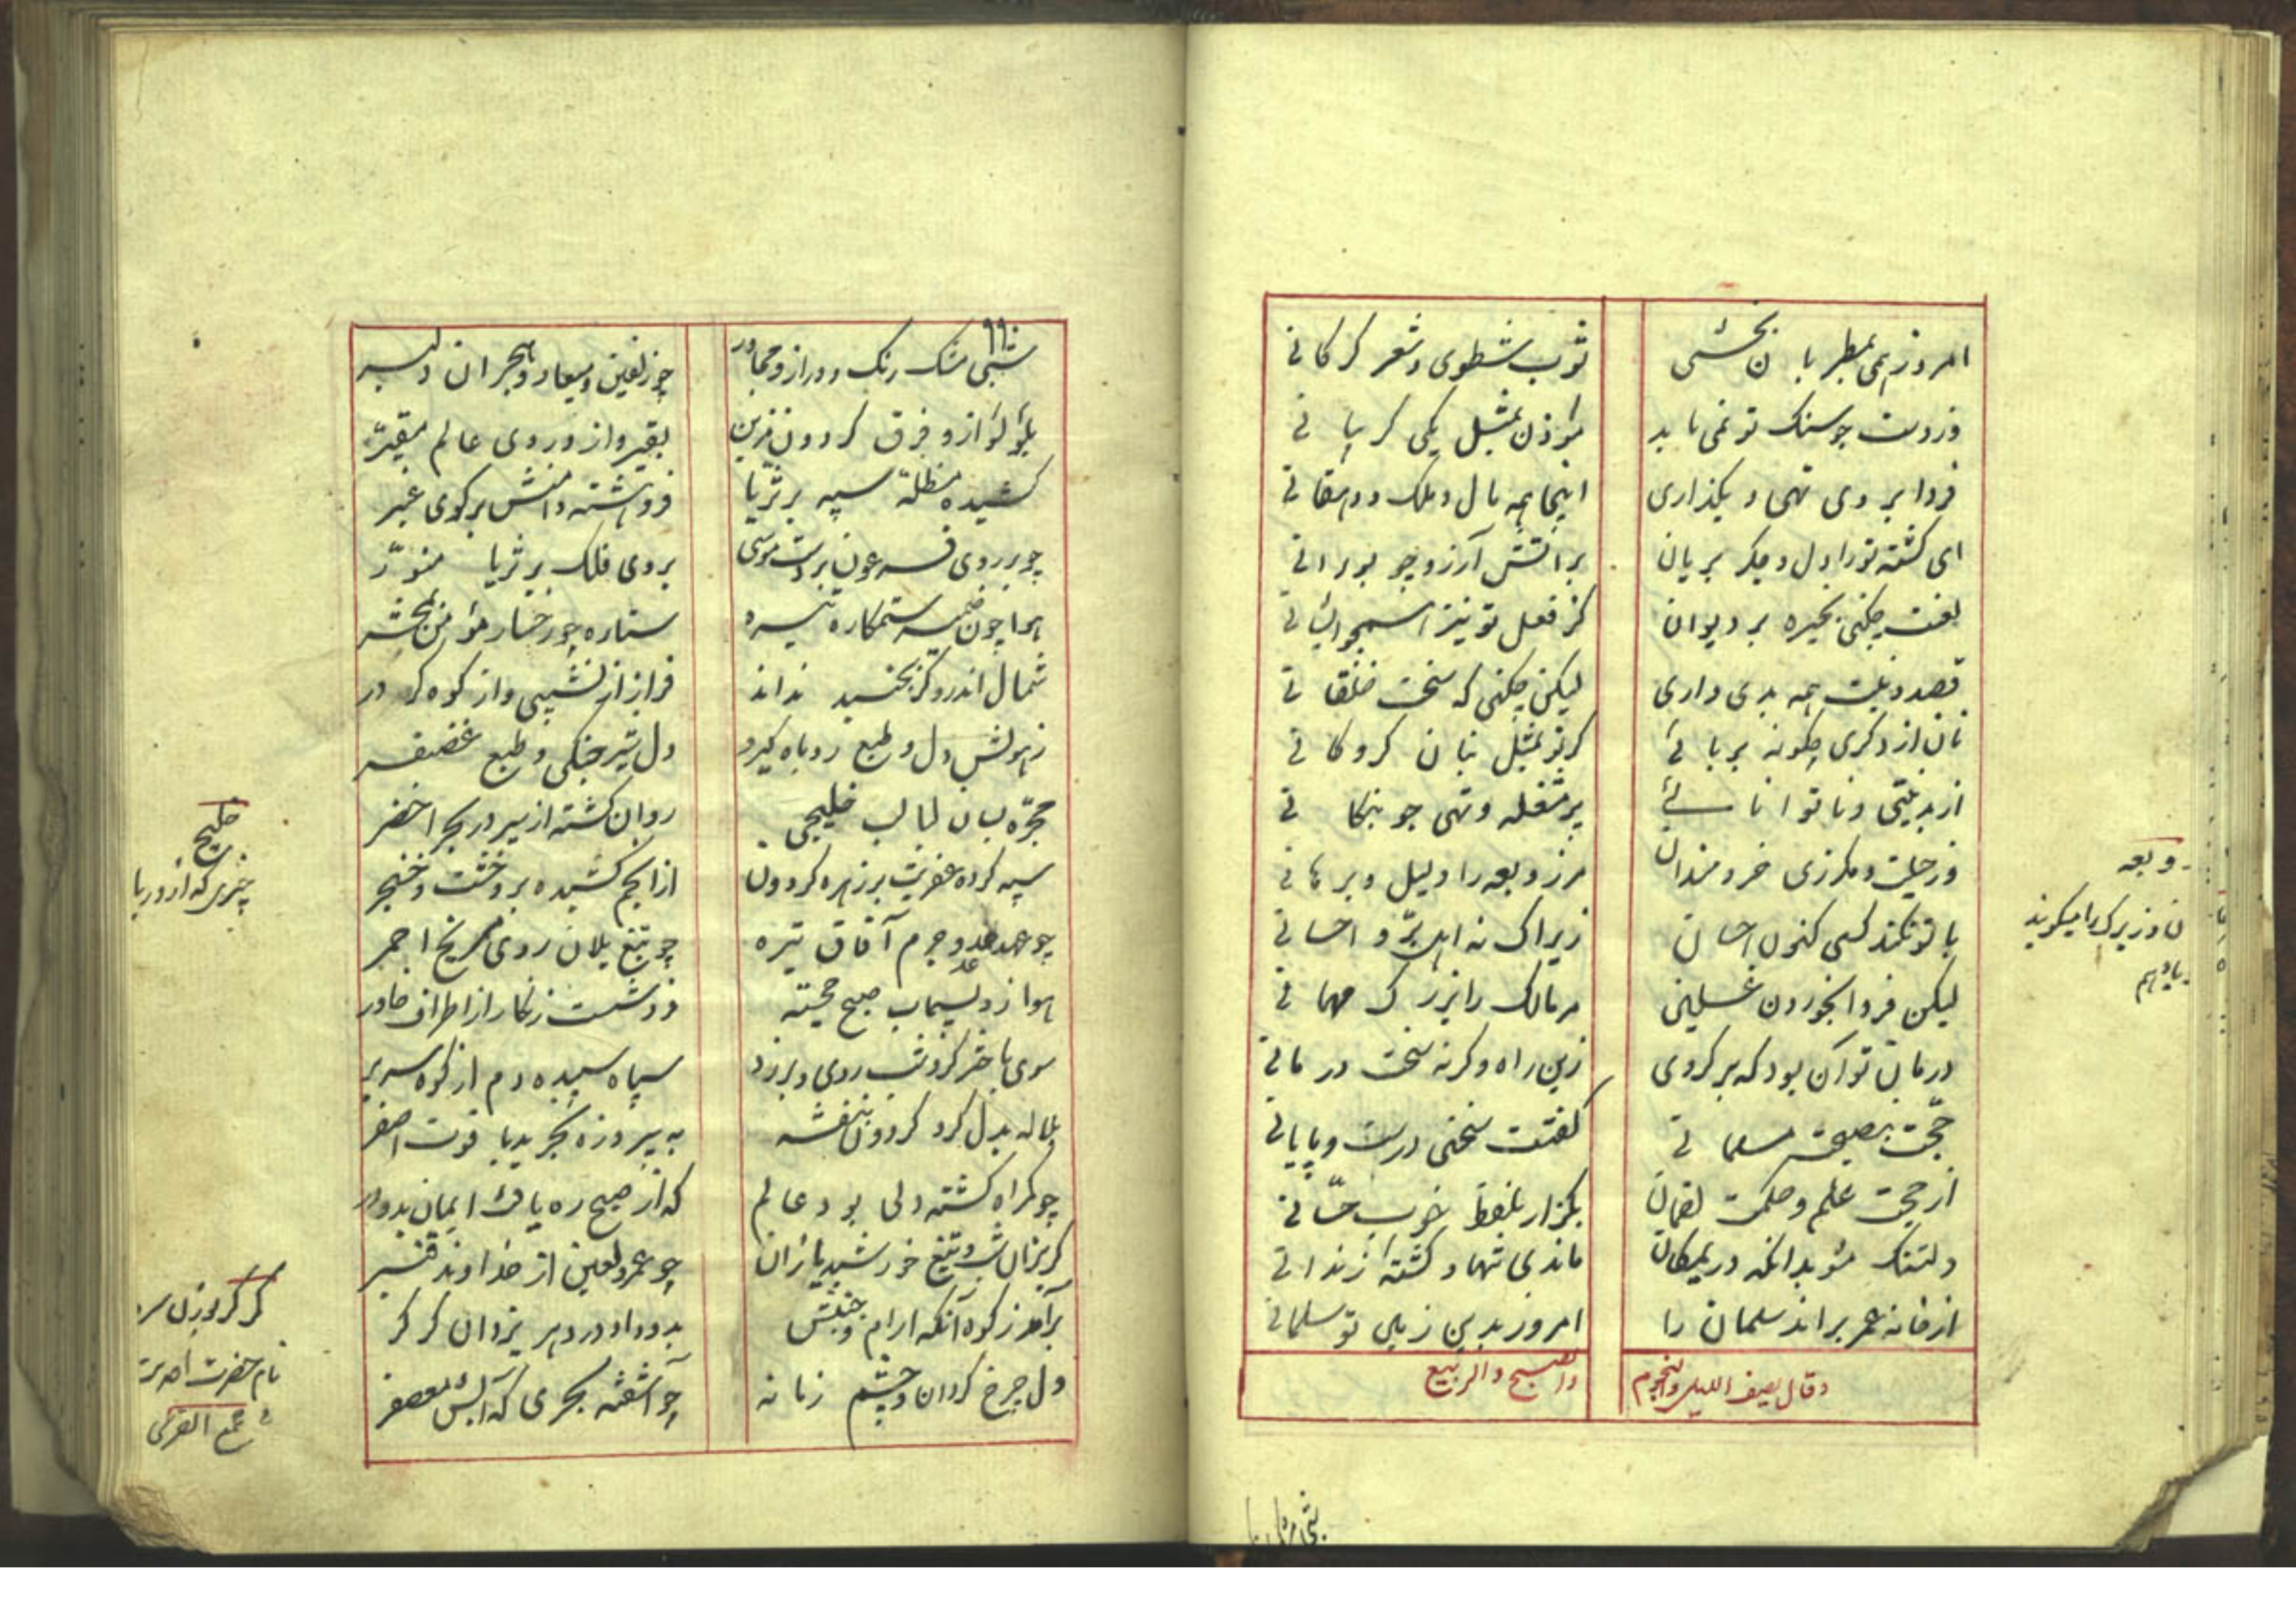 امروز همی بمطربان بخشی
ثوب شطوی و شعر کرکانی
وز دست چو سنک تو نمی یابد
مؤذن بمثل یکی کریبانی
فردا بروی تهی و بکذاری
اینجا همه مال و ملک و دهقانی
ای کشته تو را دل و جکر بریان
بر آتش آرزو چو بورانی
لعنت چکنی بخیره بر دیوان
کز فعل تو نیز
قصد و نیت همه بدی داری
لیکن چکنی که سخت خلقانی
نان از دکری چکونه بربائی
کر تو بمثل بنان کروکانی
از بد نیتی و ناتوانائی
پر مشغله و تهی چو پنکانی
وز حیلت و مکر زی خردمندان
مر زوبعه را دلیل و برهانی
با تو نکند کسی کنون احسان
زیراک نه اهل برّ و احسانی
لیکن فردا بخوردن غسلین
مر مالک را بزرک مهمانی
درمان تو آن بود که برکردی
زین راه و کرنه سخت درمانی
حجّت بنصیحت مسلمانی
کفتت سخنی درست و پایانی
از حجت علم و حکمت لقمان
بکزار بلفظ خوب حسّانی
دلتنک مشو بدانکه در یمکان
ماندی تنها و کشته زندانی
از خانه عمر براند سلمان را
امروز بدین زمین تو سلمانی
وقال یصف اللیل والنجوم
والصبح والربیع
زوبعه
خلیج
شبی مشک رنک و دراز و مجاور
چو زلفین و میعاد و هجران دلبر
بلؤلؤ از و فرق کردون مزین
بقیر و از و روی عالم مقیّر
کشیده مظلهٔ سیه بر ثریا
فروهشته دامنش بر کوی غبر
چو بر روی فرعون بر دست موسی
بروی فلک بر ثریا منوّر
هوا چون ستمکاره تیره
ستاره چو رخسار مؤمن بمحشر
شمال اندرو کر بجنبد نداند
فراز از نشیبی و از کوه کردر
ز هولش دل و طبع روباه کیرد
دل شیر جنکی و طبع غضنفر
مجرّه بسان لبالب خلیجی
روان کشته از شیر در بحر اخضر
سپه کرده عفریت بر زهره کردون
از انجم کشیده برو خشت و خنجر
چو عهد عدو جرم آفاق تیره
چو تیغ یلان روی مریخ احمر
هوا زد بسیماب صبح خجسته
فرو شست زنکار از اطراف خاور
سوی باختر کرد شب روی و برزد
سپاه سپیده دم از کوه سر بر
بلاله بدل کرد کردون بنفشه
به پیروزه بخرید یاقوت اصفر
چو کمراه کشته دلی بود عالم
که از صبح ره یافت ایمان بدو در
کریزان شب و تیغ خورشید یازان
چو عمرو لعین از خداوند قنبر
برآمد ز کوه آنکه آرام و جنبش
بدو داد در دهر یزدان کرکر
دل چرخ کردان و چشم زمانه
چو آشفته بحری که آبش معصفر